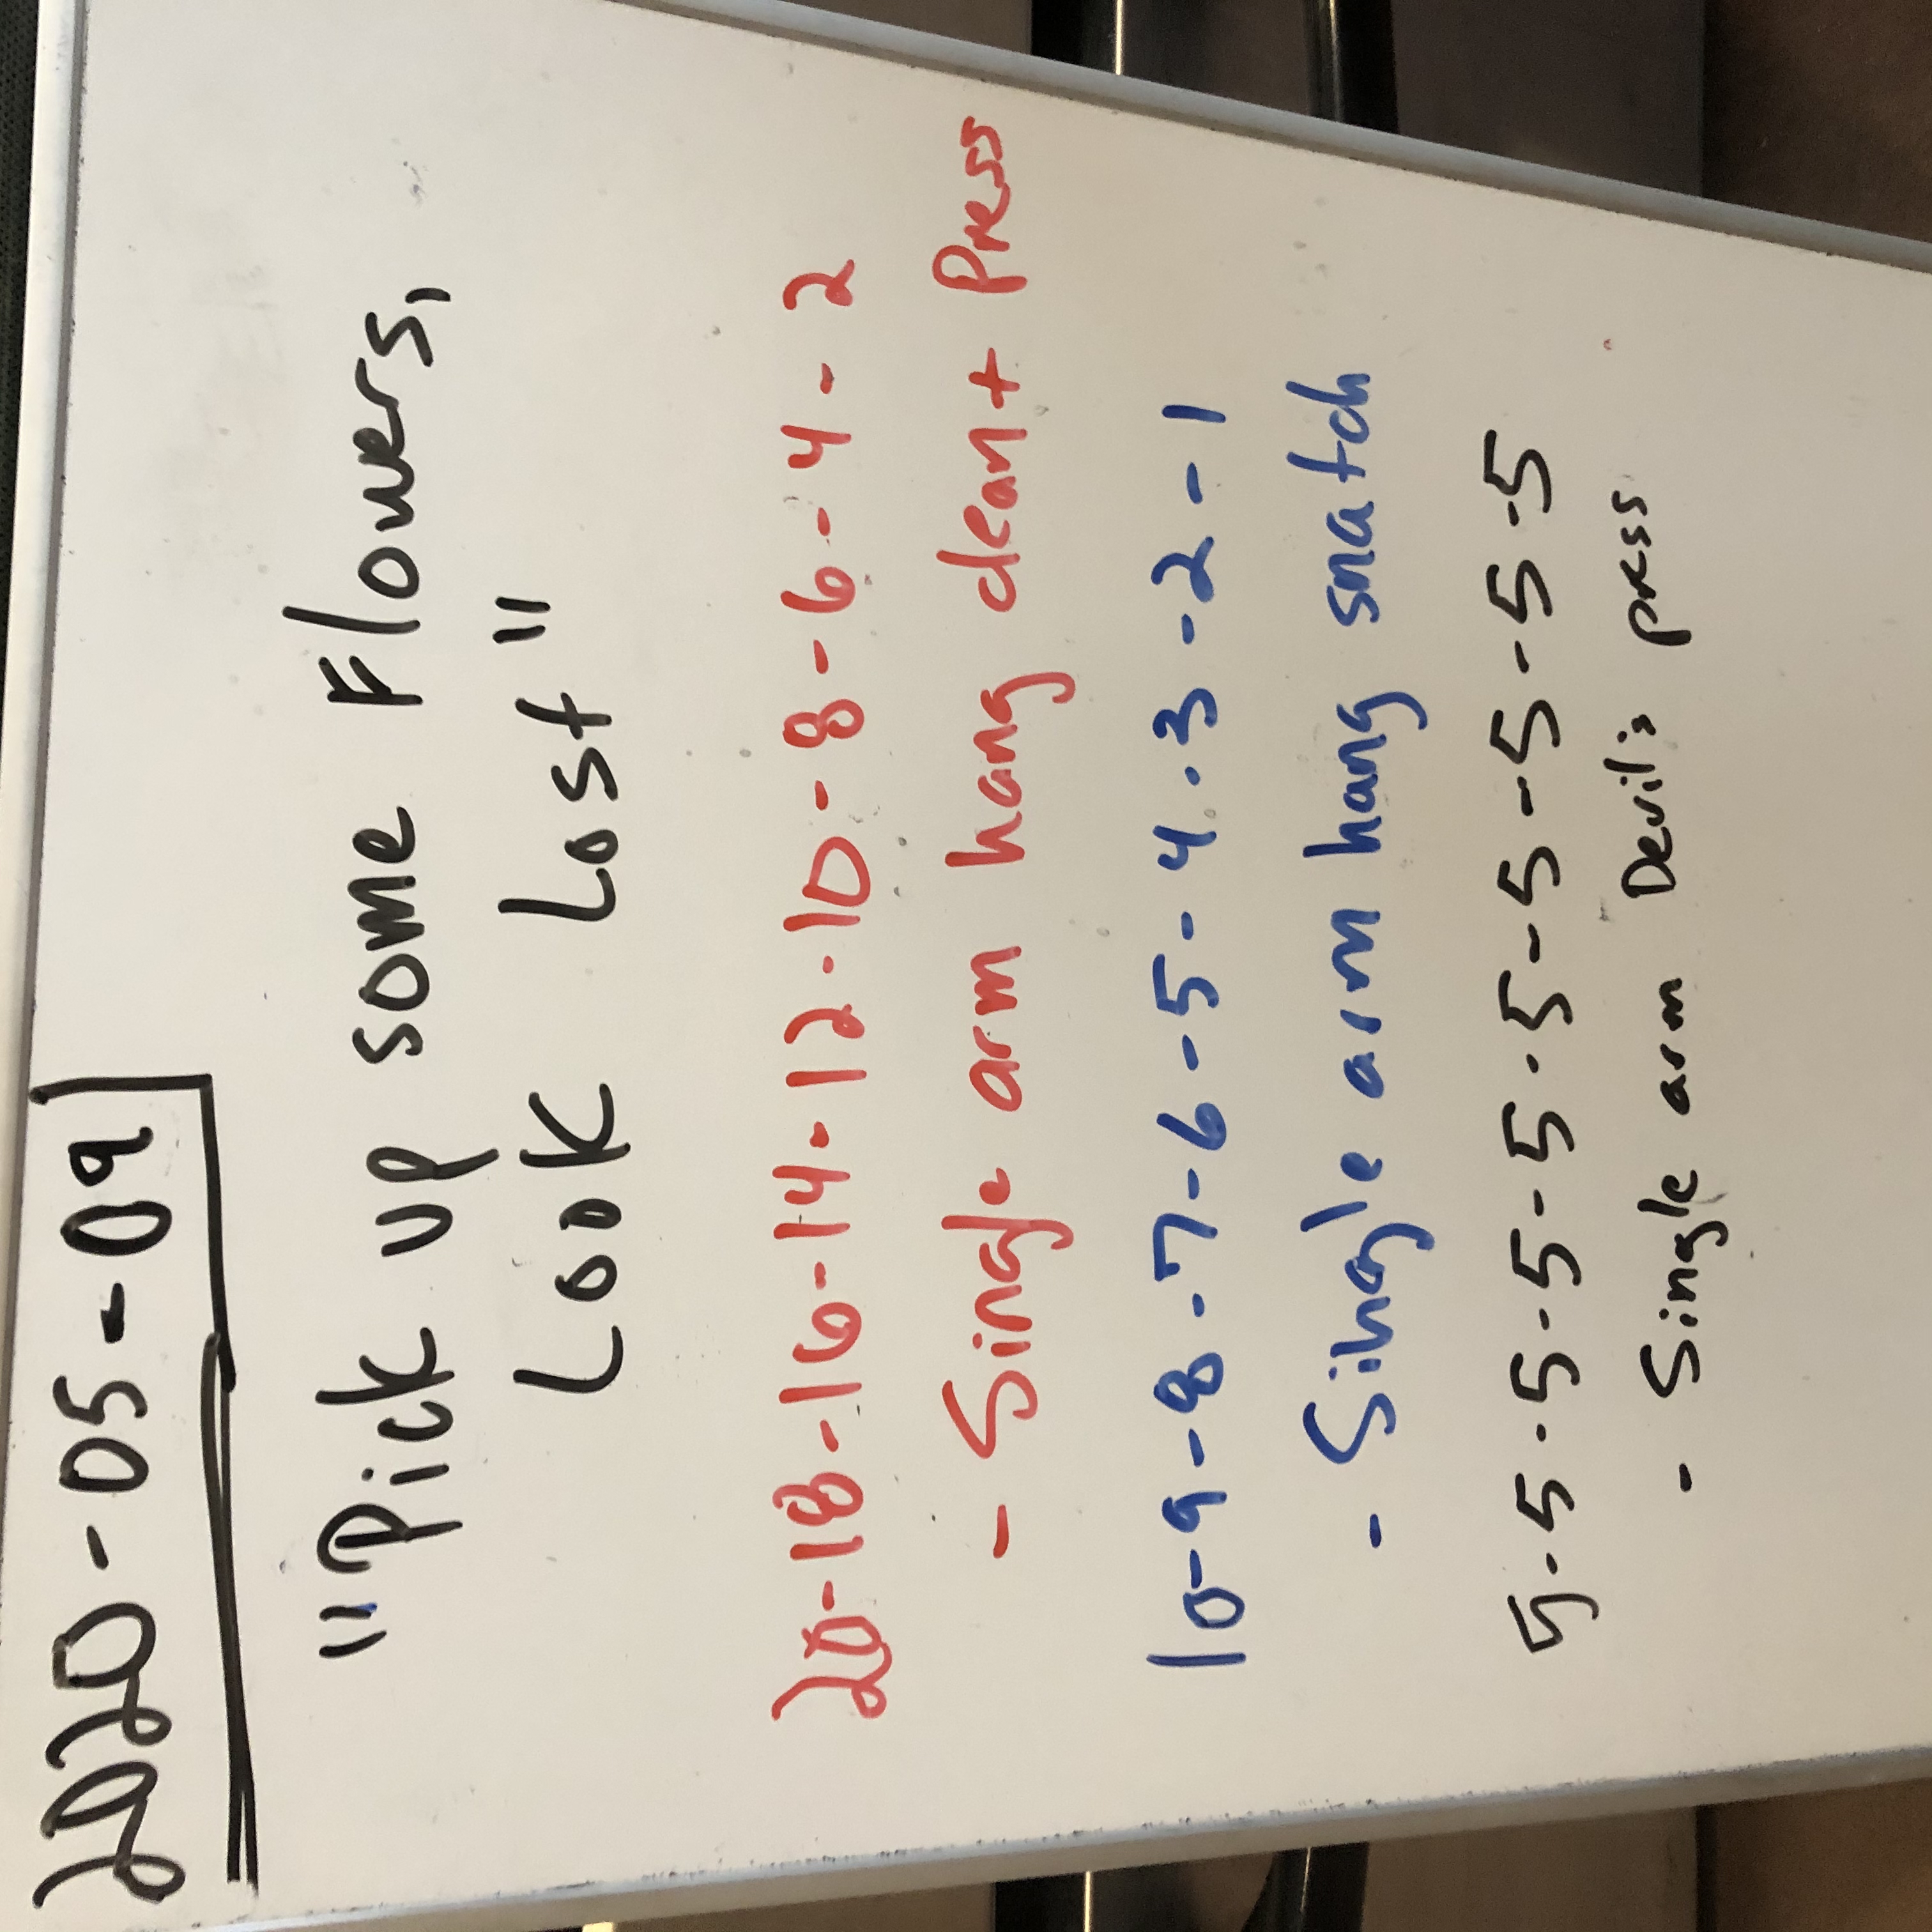 2020-05-09
"Pick up some Flowers,
Look Lost"
20-18-16-14-12-10-8-6-4-2
- Single arm hang clean + Press
10-9-8-7-6-5-4-3-2-1
- Single arm hang snatch
5-5-5-5-5-5-5-5-5-5
- Single arm Devil's press